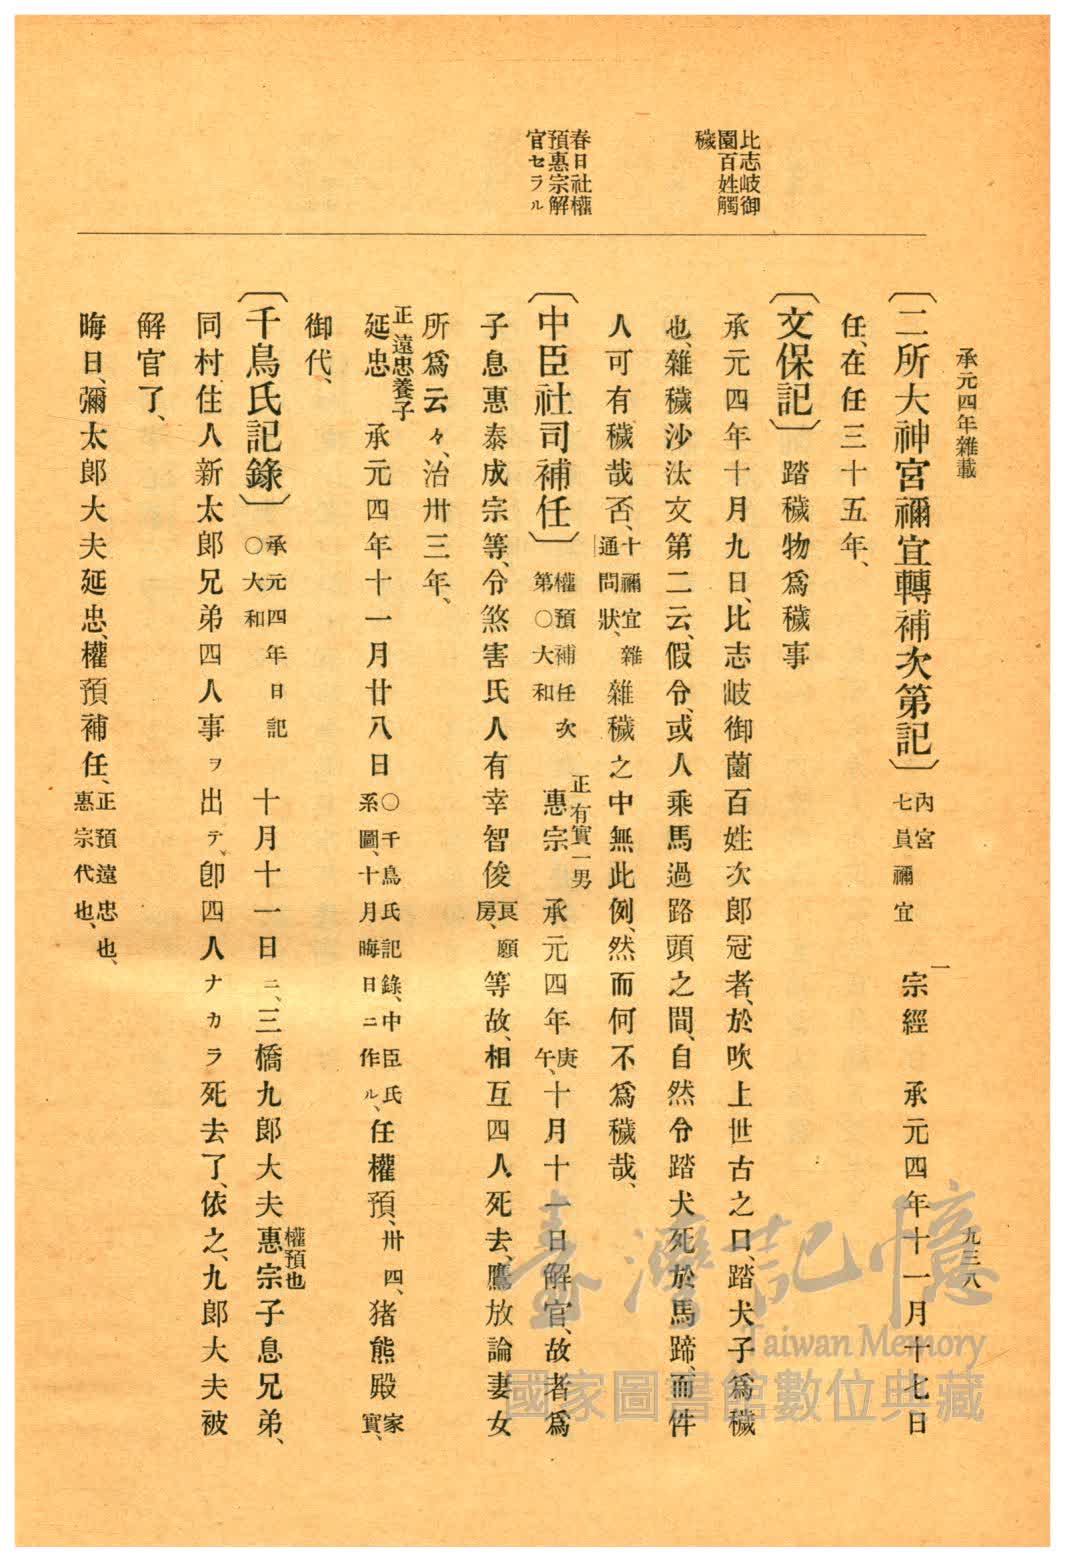 承元四年雜載
九三八
比志岐御
園百姓觸
穢
春日社權
預惠宗解
官セラル
〔二所大神宮禰宜轉補次第記〕內宮七員禰宜 一宗經 承元四年十一月十七日
任、在任三十五年、
〔文保記〕 踏穢物爲穢事
承元四年十月九日、比志岐御薗百姓次郎冠者、於吹上世古之口、踏犬子爲穢
也、雜穢沙汰文第二云、假令、或人乘馬過路頭之間、自然令踏犬死於馬蹄、而件
人可有穢哉否、十禰宜雜通問狀、雜穢之中無此例、然而何不爲穢哉、
〔中臣社司補任〕權預補任次第○大和 正有實一男惠宗 承元四年庚午、十月十一日解官、故者爲
子息惠泰成宗等、令煞害氏人有幸智俊良願房、等故、相互四人死去、鷹放論妻女
所爲云々、治卅三年、
正遠忠養子
延忠 承元四年十一月廿八日○千鳥氏記錄、中臣氏系圖、十月晦日ニ作ル、任權預、卅四、猪熊殿家實、
御代、
〔千鳥氏記錄〕承元四年日記○大和 十月十一日ニ、三橋九郎大夫惠宗權預也子息兄弟、
同村住人新太郎兄弟四人事ヲ出テ、卽四人ナカラ死去了、依之、九郎大夫被
解官了、
晦日、彌太郎大夫延忠、權預補任、正預遠忠也、惠宗代也、
臺灣記憶
Taiwan Memory
國家圖書館數位典藏